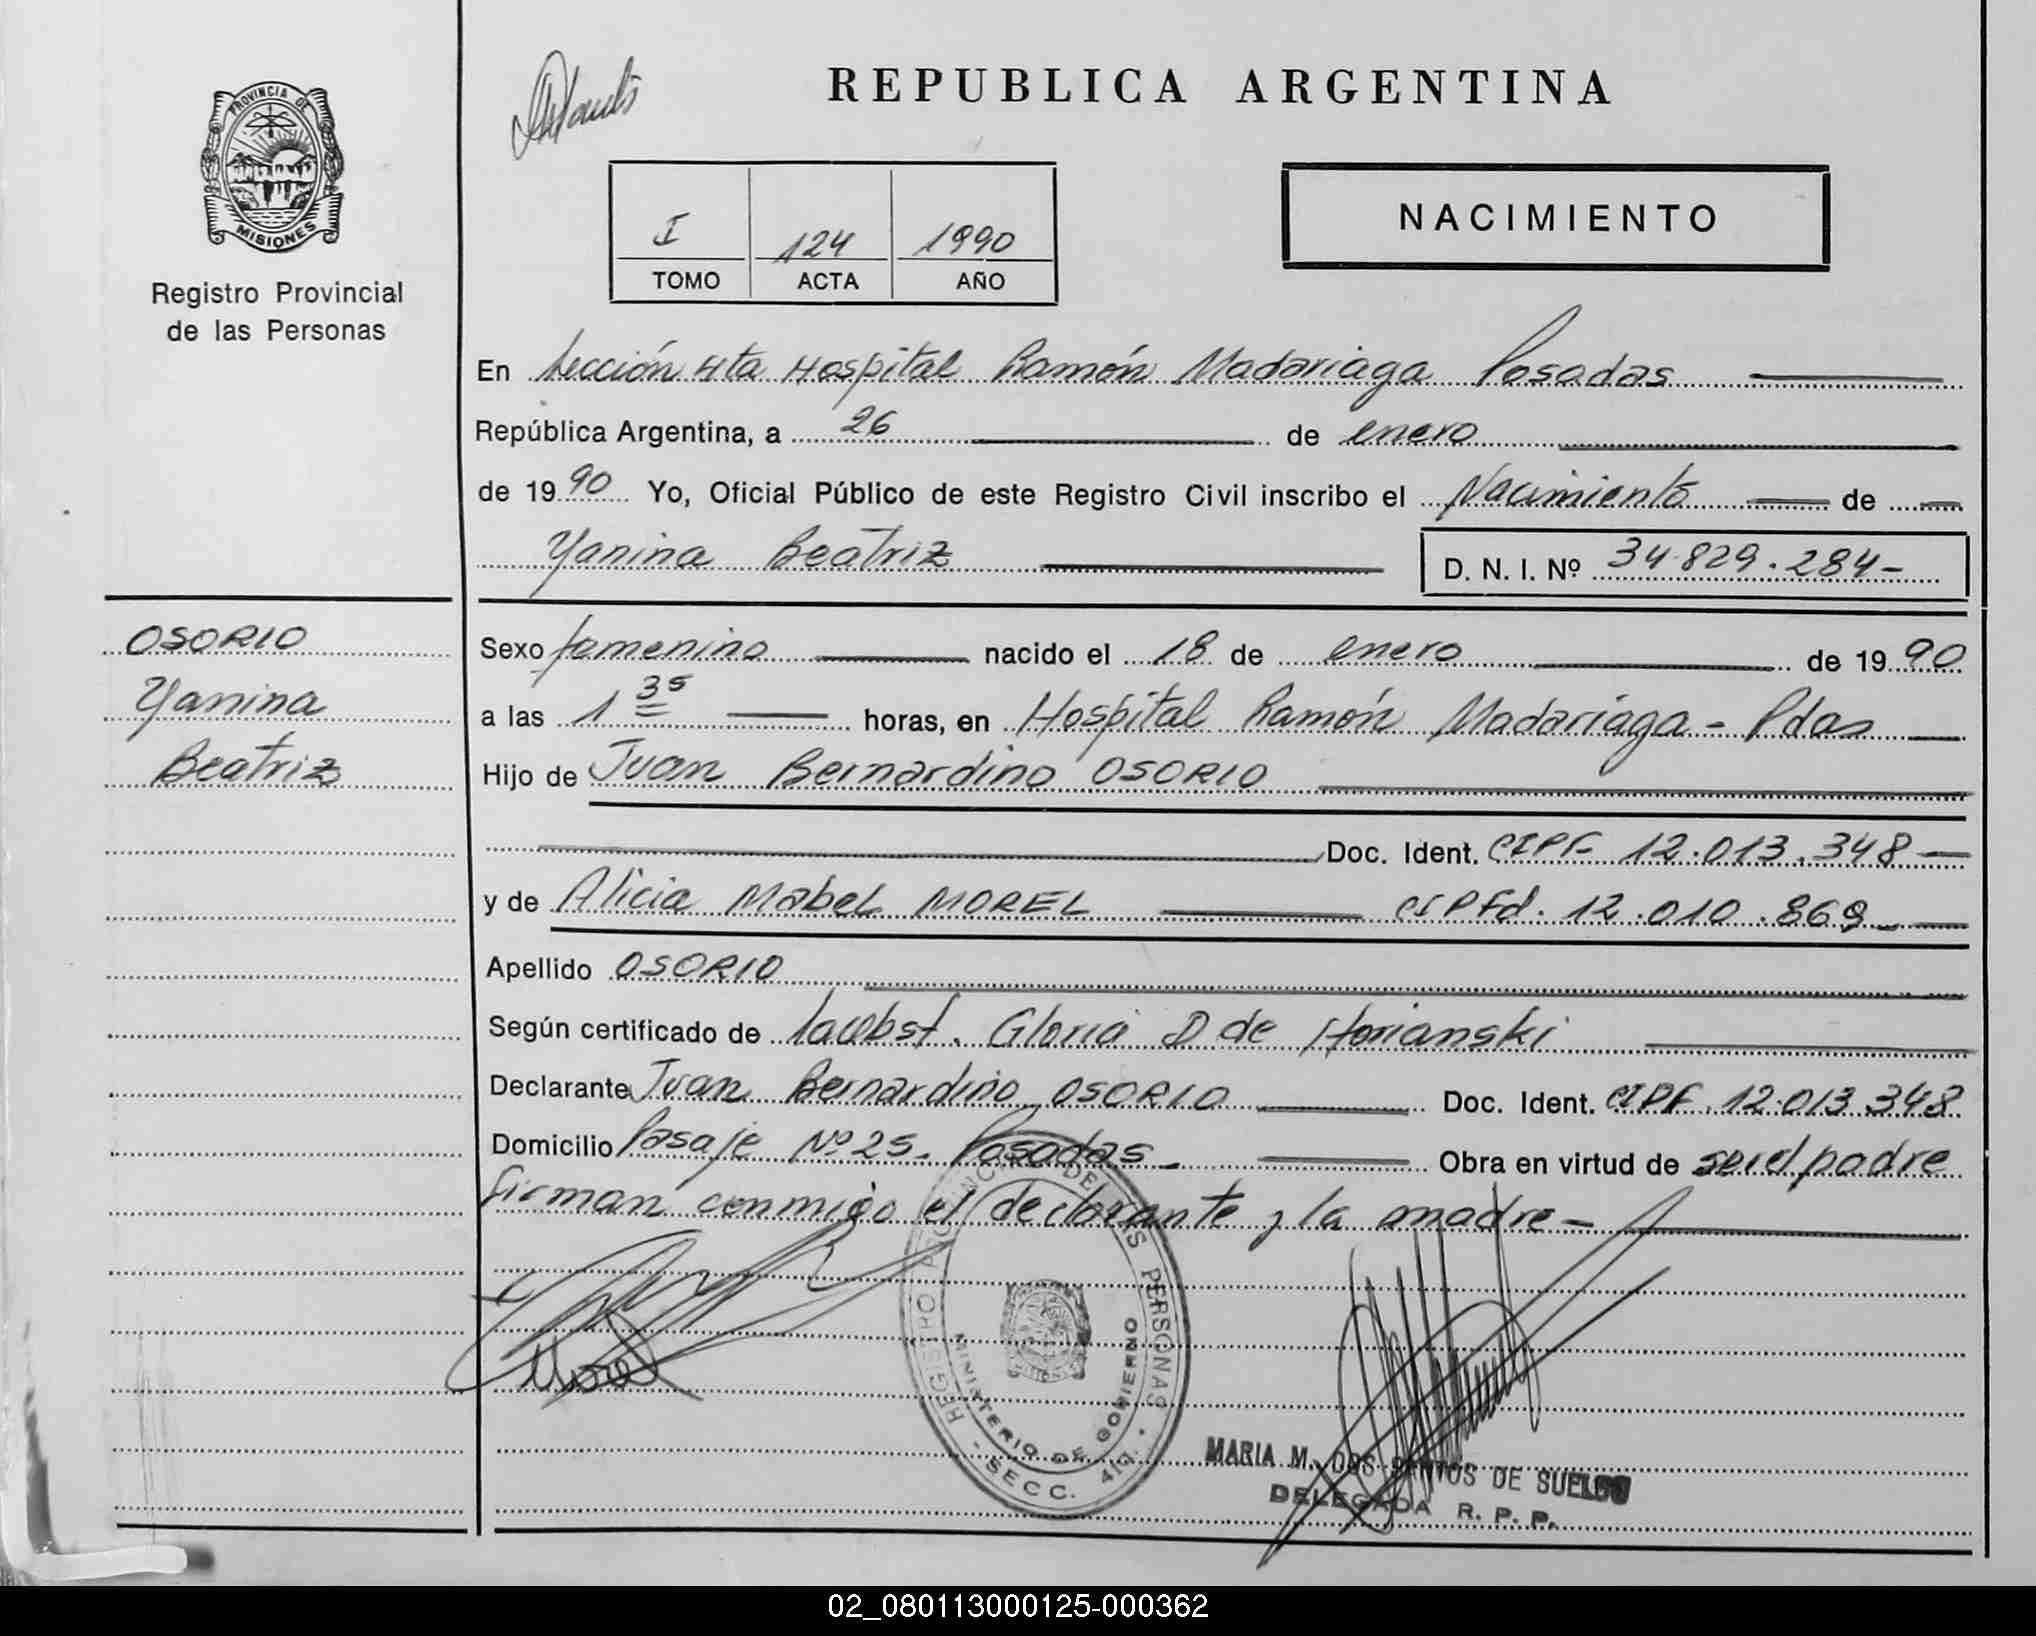 PROVINCIA DE
MISIONES
Registro Provincial
de las Personas
REPUBLICA ARGENTINA
I 124 1990
TOMO ACTA AÑO
NACIMIENTO
En Sección 4ta Hospital Ramón Madariaga Posadas
República Argentina, a 26 de enero
de 1990 Yo, Oficial Público de este Registro Civil inscribo el Nacimiento de
Yanina Beatriz D. N. I. Nº 34.829.284-
OSORIO
Yanina
Beatriz
Sexo femenino nacido el 18 de enero de 1990
a las 1 35 horas, en Hospital Ramón Madariaga - Pdas
Hijo de Juan Bernardino OSORIO
Doc. Ident. CIPF 12.013.348
y de Alicia Mabel MOREL CIPFd. 12.010.869
Apellido OSORIO
Según certificado de Gloria D de
Declarante Juan Bernardino OSORIO Doc. Ident. CIPF. 12.013.348
Domicilio Pasaje Nº 25. Posadas. Obra en virtud de ser el padre
firman conmigo el declarante y la madre -
REGISTRO PROVINCIAL DE LAS PERSONAS
MINISTERIO DE GOBIERNO
SECC. 4ta.
MARIA M. DOS SANTOS DE SUELDO
DELEGADA R. P. P.
02_080113000125-000362